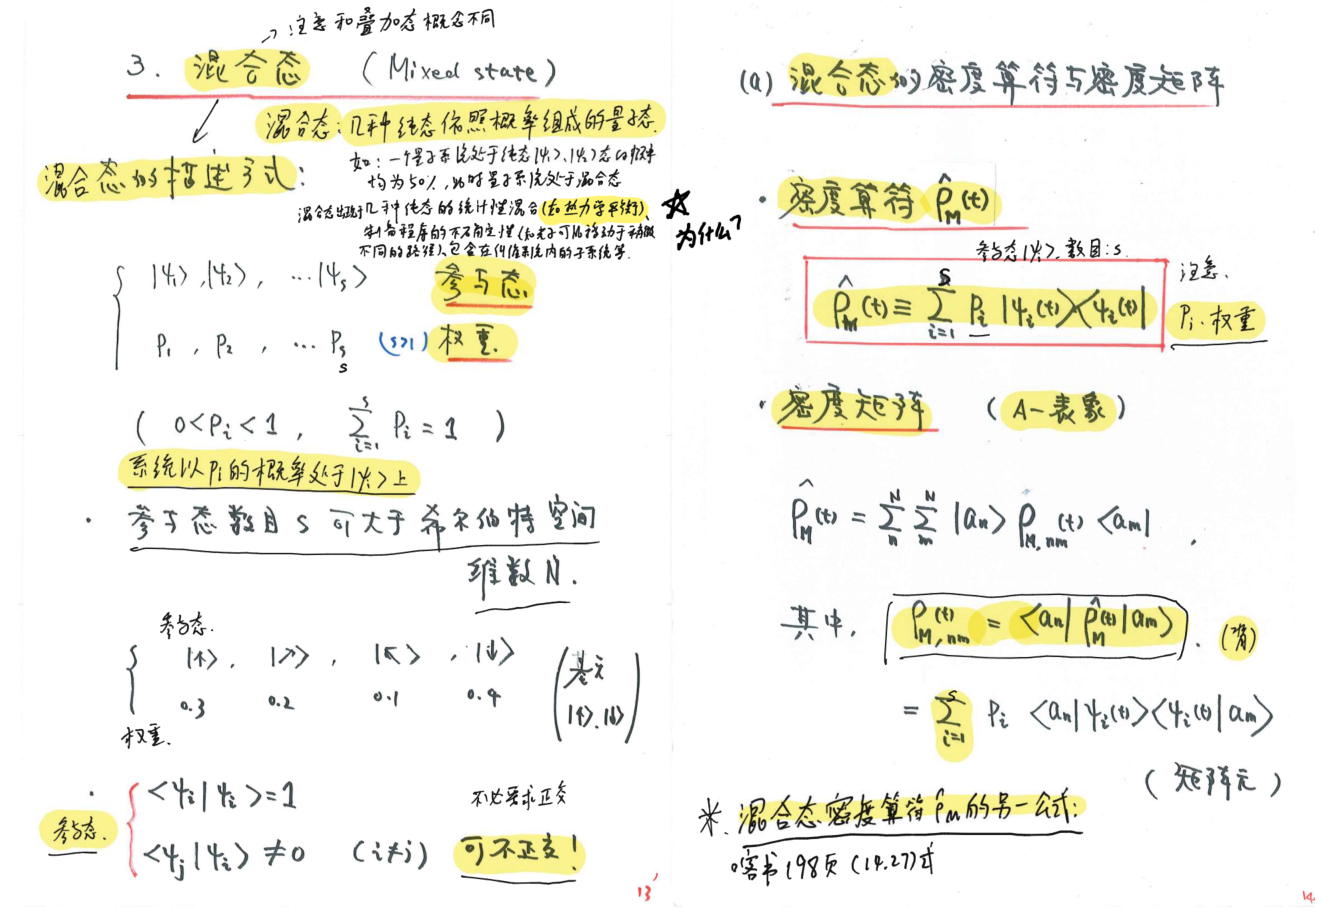 →注意和叠加态概念不同
3. 混合态 (Mixed state)
混合态: 几种纯态依照概率组成的量子态.
混合态的描述方式:
如: 一个量子系统处于纯态|ψ₁>、|ψ₂>态的概率
均为50%, 此时量子系统处于混合态
混合态出现于几种纯态的统计性混合(如热力学平衡)、
制备程序的不确定性(如光子可能移动于稍微
不同的路径)、包含在纠缠系统内的子系统等.
|ψ₁>, |ψ₂>, ...|ψs> 参与态
P₁, P₂, ... Ps (s>1) 权重.
s
( 0<Pi<1, \sum_{i=1}^{s} Pi = 1 )
系统以Pi的概率处于|ψi>上
· 参与态数目 s 可大于希尔伯特空间
维数N.
参与态.
|↑>, |↗>, |↖>, |↓>
0.3 0.2 0.1 0.4
权重.
(基元
|↑>.|↓>)
· <ψi|ψi>=1 不必要求正交
参与态. <ψj|ψi> ≠0 (i≠j) 可不正交!
13
(a) 混合态的密度算符与密度矩阵
☆
为什么?
· 密度算符 \hat{ρ}_M(t)
参与态|ψi>, 数目:s.
\hat{ρ}_M(t) ≡ \sum_{i=1}^{s} Pi |ψi(t)><ψi(t)|
注意.
Pi: 权重
· 密度矩阵 (A-表象)
\hat{ρ}_M(t) = \sum_{n}^{N} \sum_{m}^{N} |an> ρ_{M,nm}(t) <am| .
其中, ρ_{M,nm}(t) = <an| \hat{ρ}_M(t) |am> .
= \sum_{i=1}^{s} Pi <an|ψi(t)><ψi(t)|am>
(矩阵元)
※. 混合态密度算符\hat{ρ}_M的另一公式:
喀书198页 (14.27)式
14